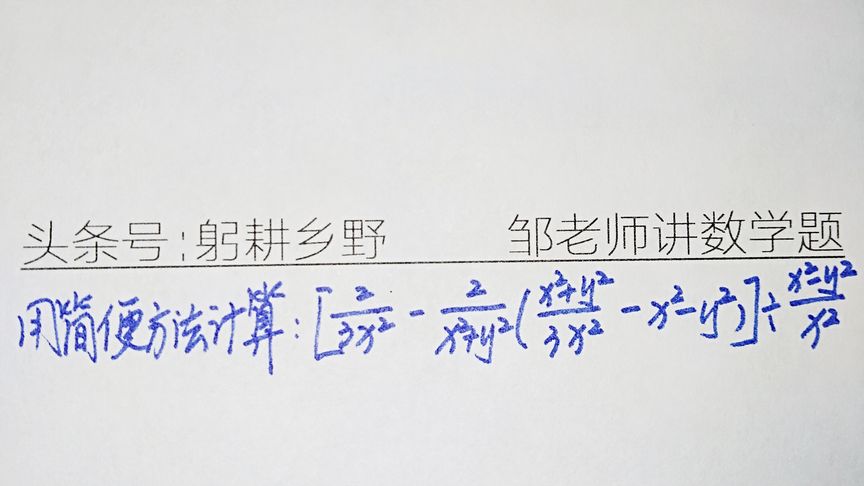 头条号:躬耕乡野 邹老师讲数学题
用简便方法计算:[2/3x² - 2/x²+y²(x²+y²/3x² - x²-y²)]÷x²-y²/x²